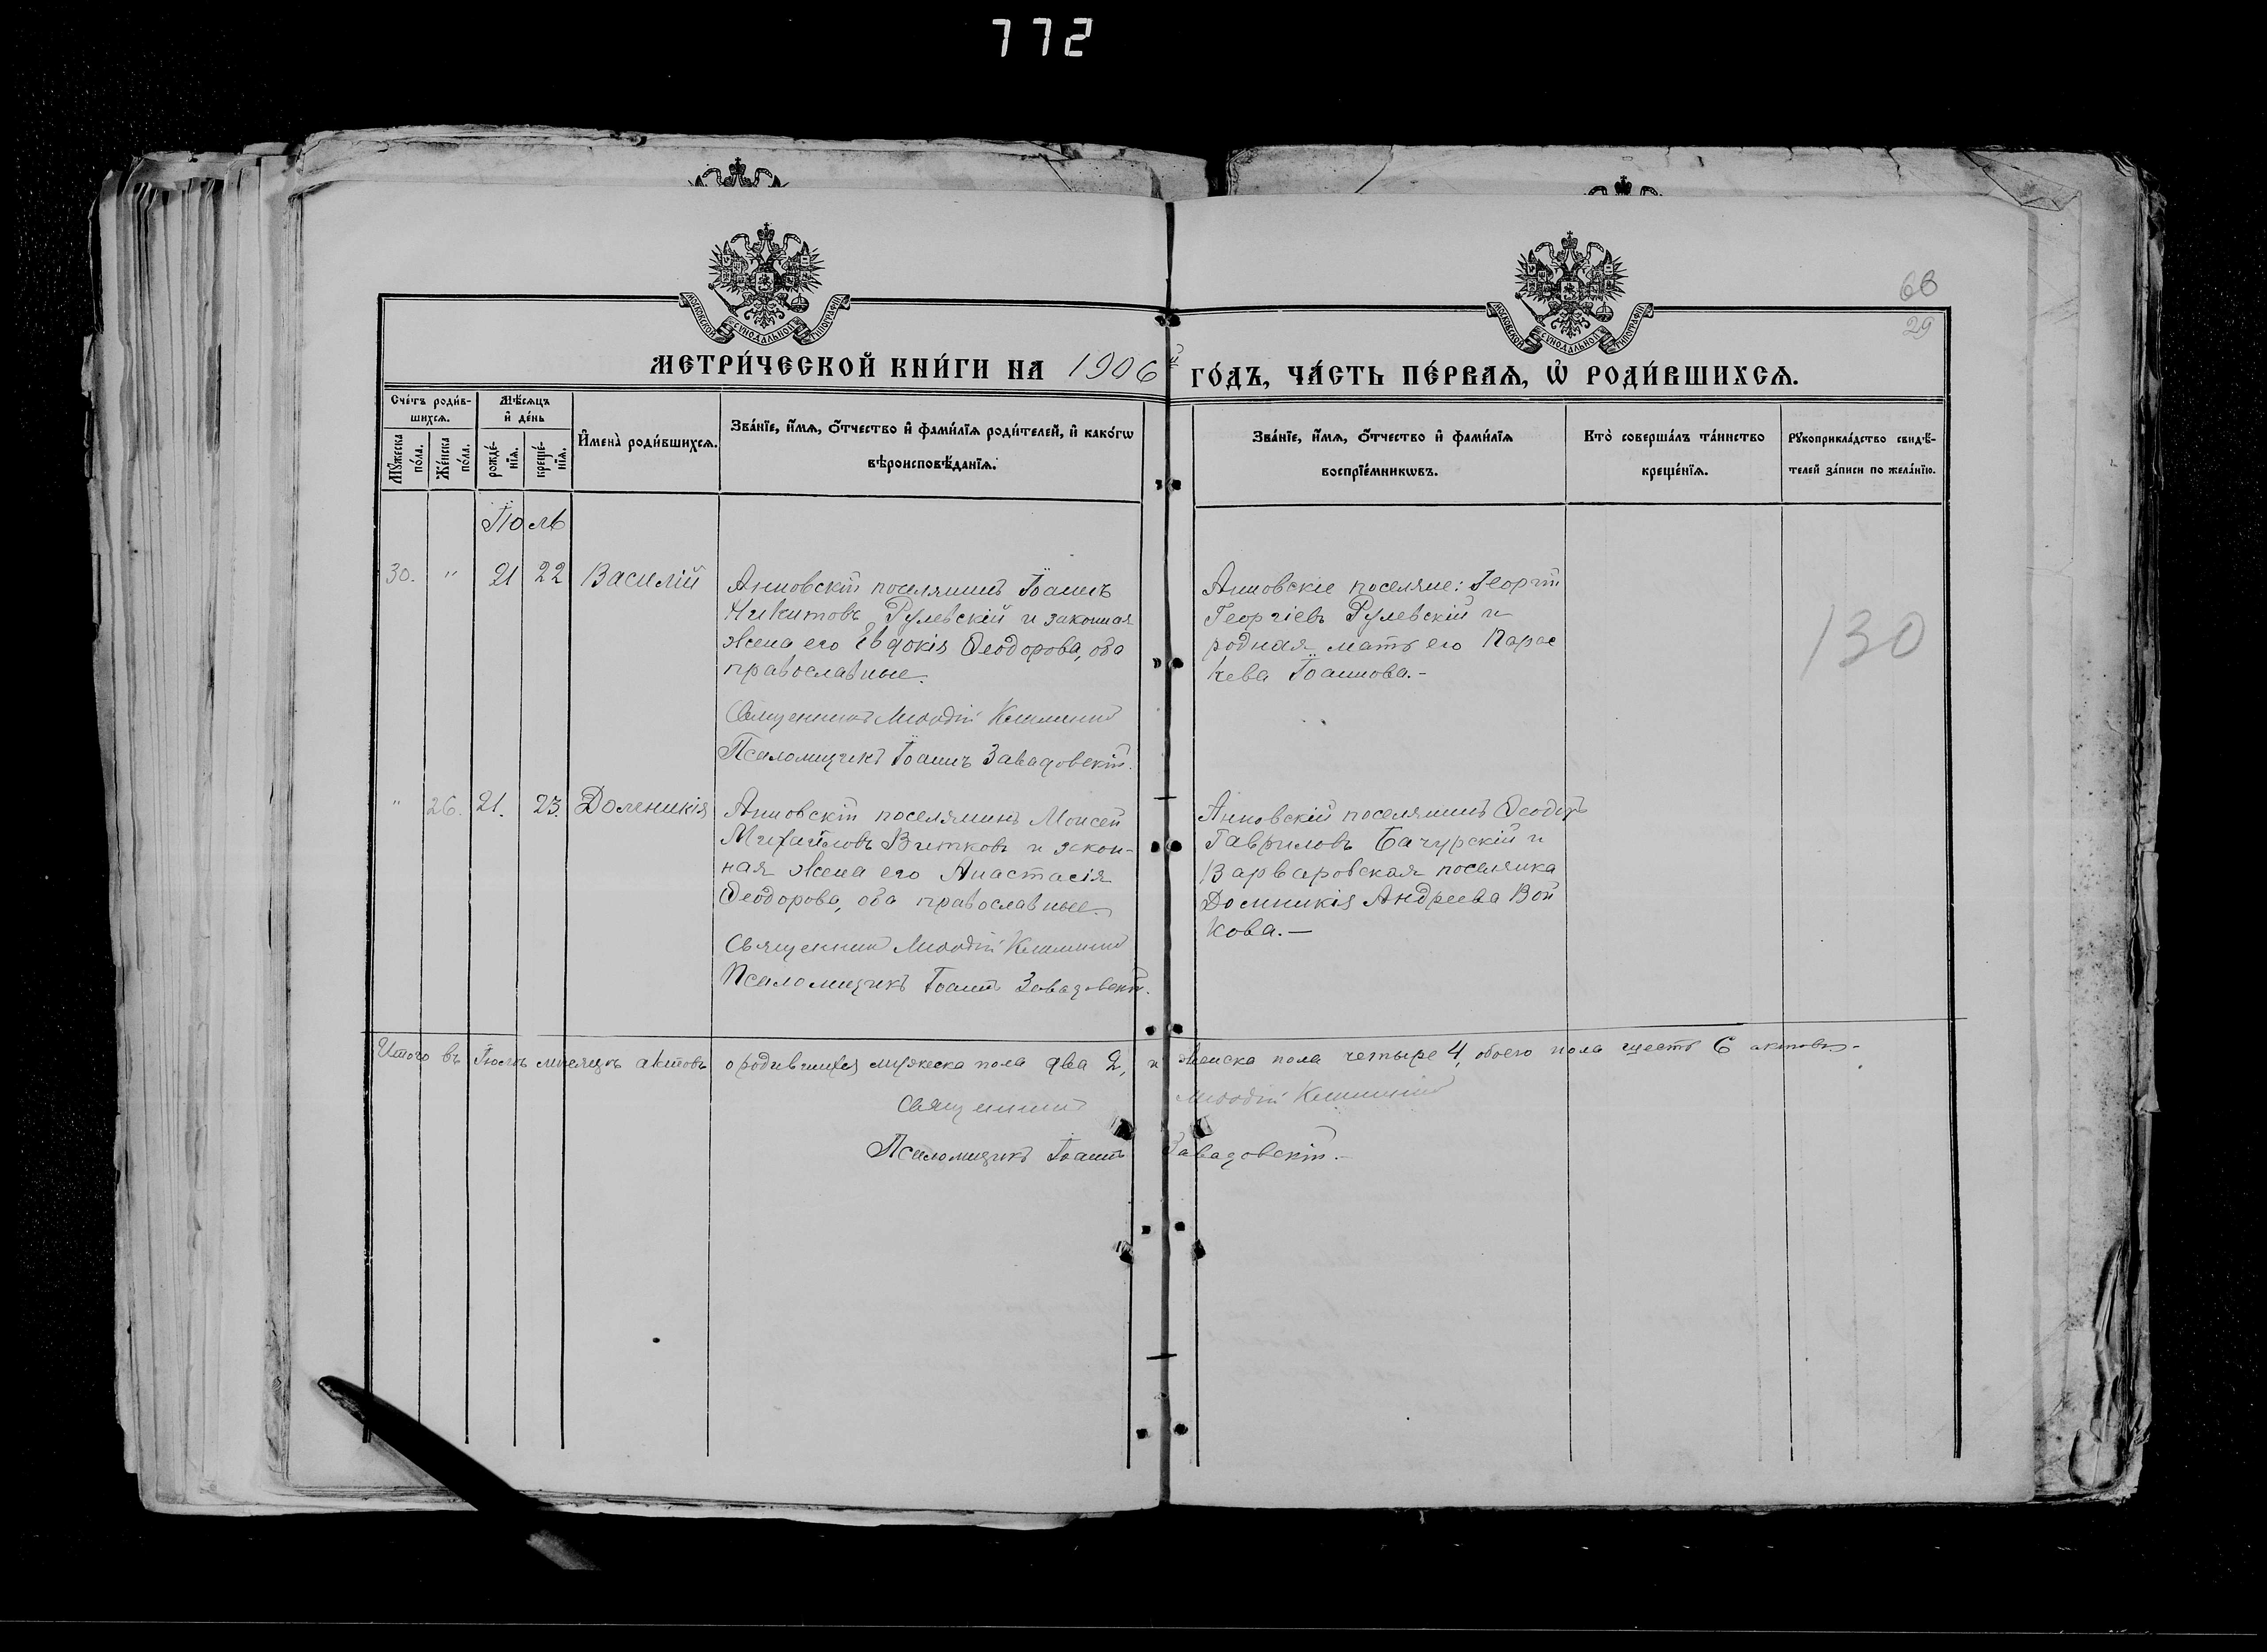 772
МОСКОВСКОЙ СѴНОДАЛЬНОЙ ТИПОГРАФІИ
МОСКОВСКОЙ СѴНОДАЛЬНОЙ ТИПОГРАФІИ
60
29
МЕТРИ́ЧЕСКОЙ КНИ́ГИ НА 1906й ГО́ДЪ, ЧА́СТЬ ПЕ́РВАѦ, Ѡ҆ РОДИ́ВШИХСѦ.
Сче́тъ роди́в-
шихсѧ.
Мѣ́сѧцъ
и҆ де́нь
Мꙋ́жеска
по́ла.
Же́нска
по́ла.
рожде́-
нїѧ.
креще́-
нїѧ.
И҆мена̀ роди́вшихсѧ.
Зва́нїе, и҆́мѧ, ѻ҆́тчество и҆ фами́лїѧ роди́телей, и҆ како́гѡ
вѣроисповѣ́данїѧ.
Зва́нїе, и҆́мѧ, ѻ҆́тчество и҆ фами́лїѧ
воспрїе́мникѡвъ.
Кто̀ соверша́лъ та́инство
креще́нїѧ.
Рꙋкоприкла́дство свидѣ́-
телей за́писи по жела́нїю.
Іюль
30. " 21 22 Василій
Анновскій поселянинъ Іоаннъ
Никитовъ Рулевскій и законная
жена его Евдокія Ѳеодорова, оба
православные.
Священникъ Меѳодій
Псаломщикъ Іоаннъ Завадовскій.
Анновскіе поселяне: Георгій
Георгіевъ Рулевскій и
родная мать его Парас
кева Іоаннова.-
130
" 26. 21. 23. Домникія
Анновскій поселянинъ Моисей
Михайловъ Витковъ и закон-
ная жена его Анастасія
Ѳеодорова, оба православные.
Священникъ Меѳодій
Псаломщикъ Іоаннъ Завадовскій.
Анновскій поселянинъ Ѳеодоръ
Гавриловъ Бачурскій и
Варваровская поселянка
Домникія Андреева Вой
кова.—
Итого въ Іюлѣ мѣсяцѣ актовъ о родившихся мужеска пола два 2, и женска пола четыре 4, обоего пола шесть 6 актовъ.-
Священникъ Меѳодій
Псаломщикъ Іоаннъ Завадовскій.-